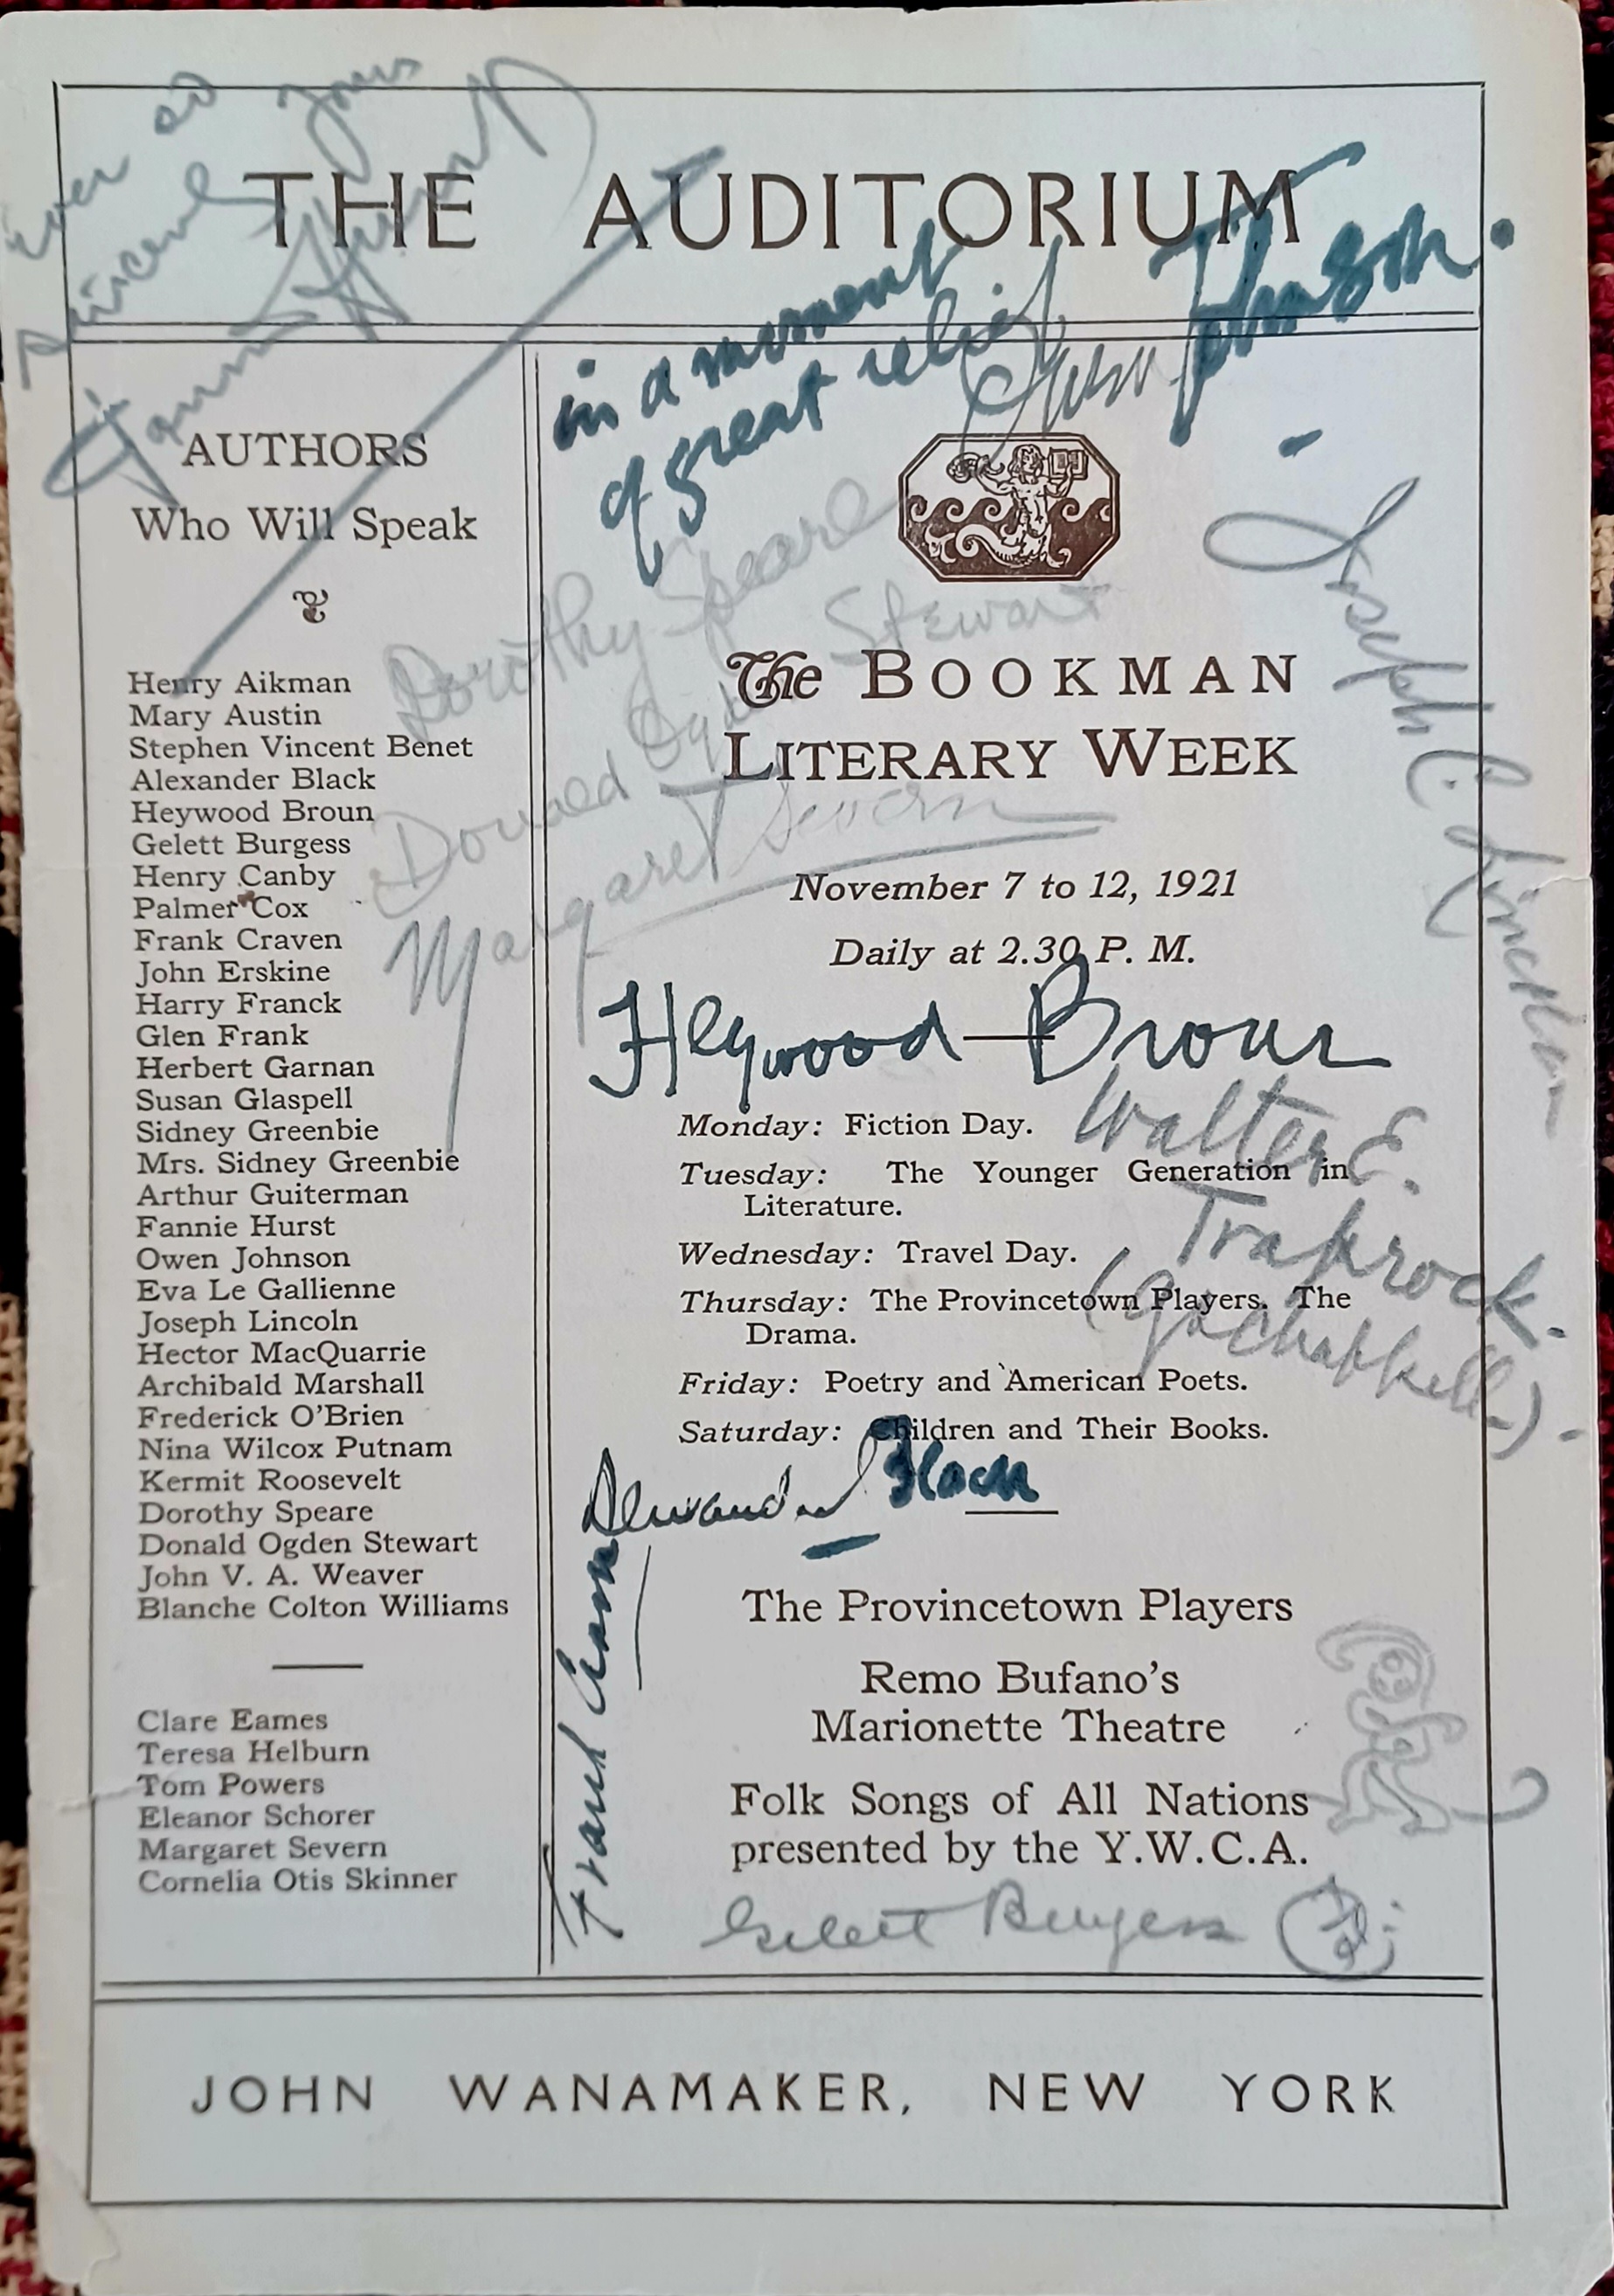 ever so
sincerely yours
Fannie Hurst
THE AUDITORIUM
in a moment
of great relief
Owen Johnson.
AUTHORS
Who Will Speak
Henry Aikman
Mary Austin
Stephen Vincent Benet
Alexander Black
Heywood Broun
Gelett Burgess
Henry Canby
Palmer Cox
Frank Craven
John Erskine
Harry Franck
Glen Frank
Herbert Garnan
Susan Glaspell
Sidney Greenbie
Mrs. Sidney Greenbie
Arthur Guiterman
Fannie Hurst
Owen Johnson
Eva Le Gallienne
Joseph Lincoln
Hector MacQuarrie
Archibald Marshall
Frederick O'Brien
Nina Wilcox Putnam
Kermit Roosevelt
Dorothy Speare
Donald Ogden Stewart
John V. A. Weaver
Blanche Colton Williams
Clare Eames
Teresa Helburn
Tom Powers
Eleanor Schorer
Margaret Severn
Cornelia Otis Skinner
Dorothy Speare
Donald Ogden Stewart
Margaret Severn
Joseph C. Lincoln
The BOOKMAN
LITERARY WEEK
November 7 to 12, 1921
Daily at 2.30 P. M.
Heywood Broun
Walter E.
Traprock.
(G S Chappell).
Monday: Fiction Day.
Tuesday: The Younger Generation in
Literature.
Wednesday: Travel Day.
Thursday: The Provincetown Players. The
Drama.
Friday: Poetry and American Poets.
Saturday: Children and Their Books.
Alexander Black
Frank Craven
The Provincetown Players
Remo Bufano's
Marionette Theatre
Folk Songs of All Nations
presented by the Y.W.C.A.
Gelett Burgess
JOHN WANAMAKER, NEW YORK